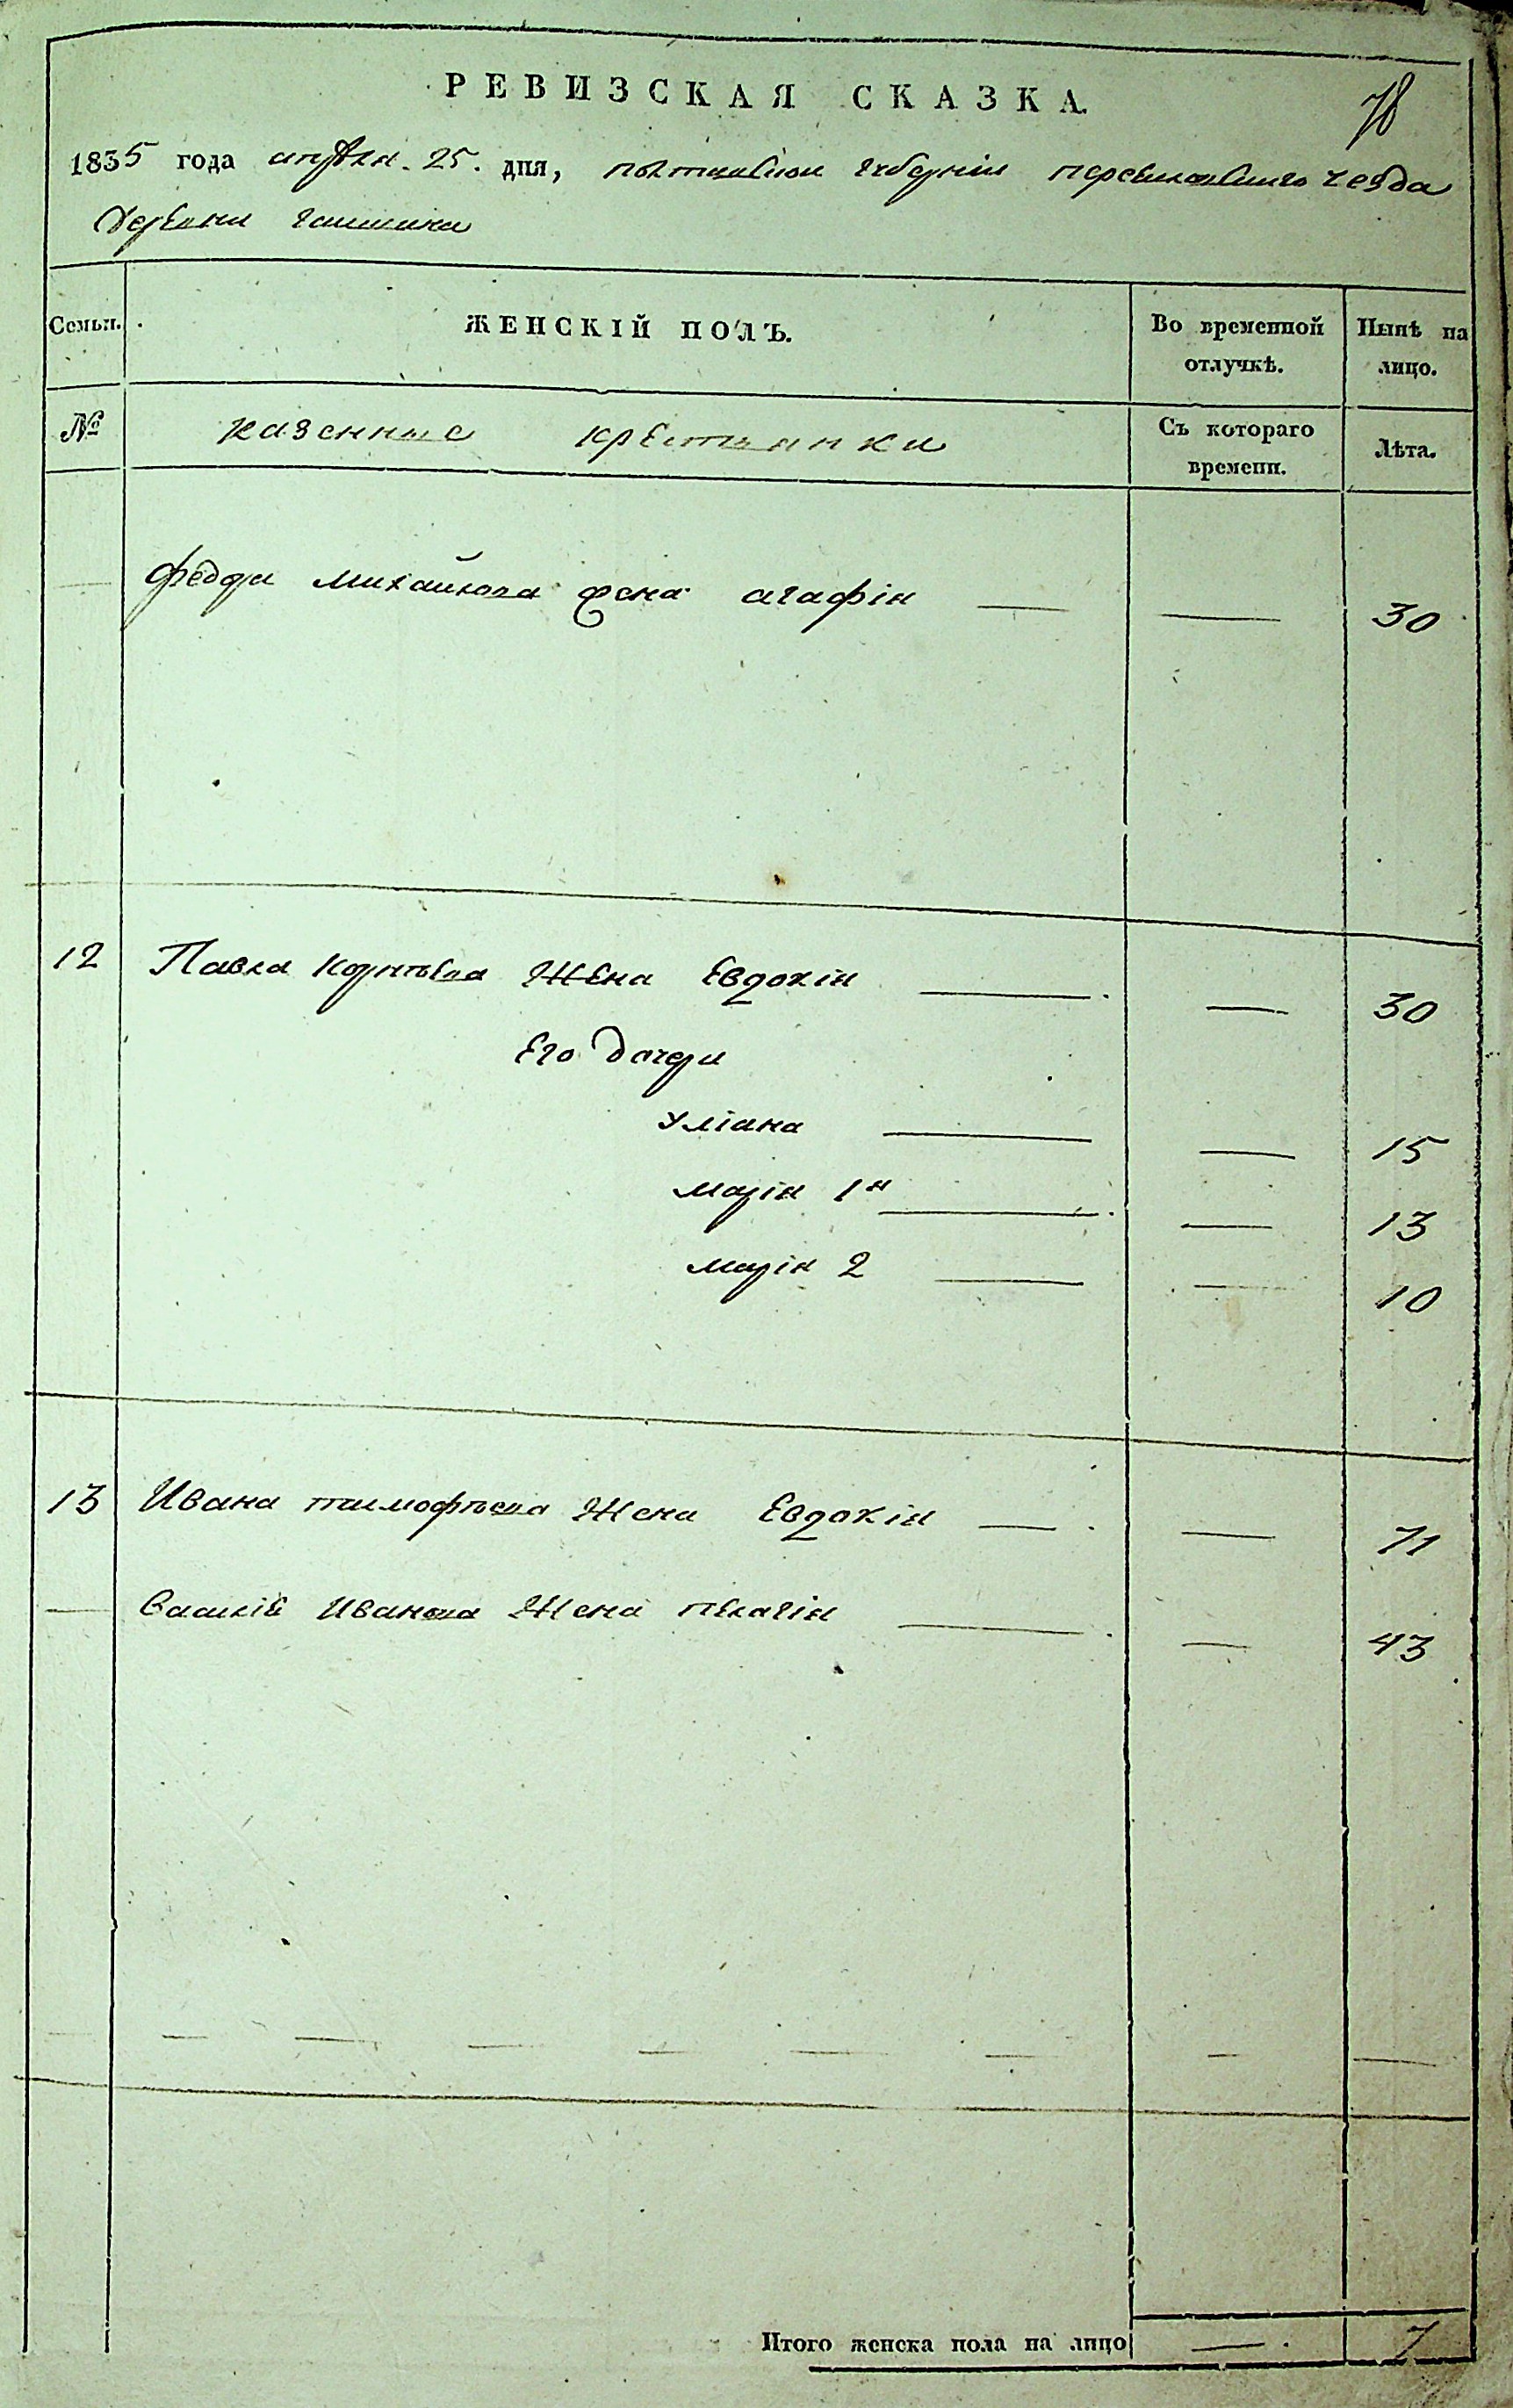 РЕВИЗСКАЯ СКАЗКА.
78
1835 года апреля 25. дня, полтавской губернии переяславского уезда
Деревни
Семьи.
ЖЕНСКІЙ ПОЛЪ.
Во временной отлучкѣ.
Нынѣ на лицо.
№
казенные крестьянки
Съ котораго времени.
Лѣта.
Федора Михайлова жена агафія — — 30
12 Павла Корнѣева Жена Евдокія — — 30
Его дочери
Уліана — — 15
Марія 1я — — 13
Марія 2 — — 10
13 Ивана тимофѣева Жена Евдокія — — 71
— Василія Иванова Жена пелагія — — 43
Итого женска пола на лицо — 7